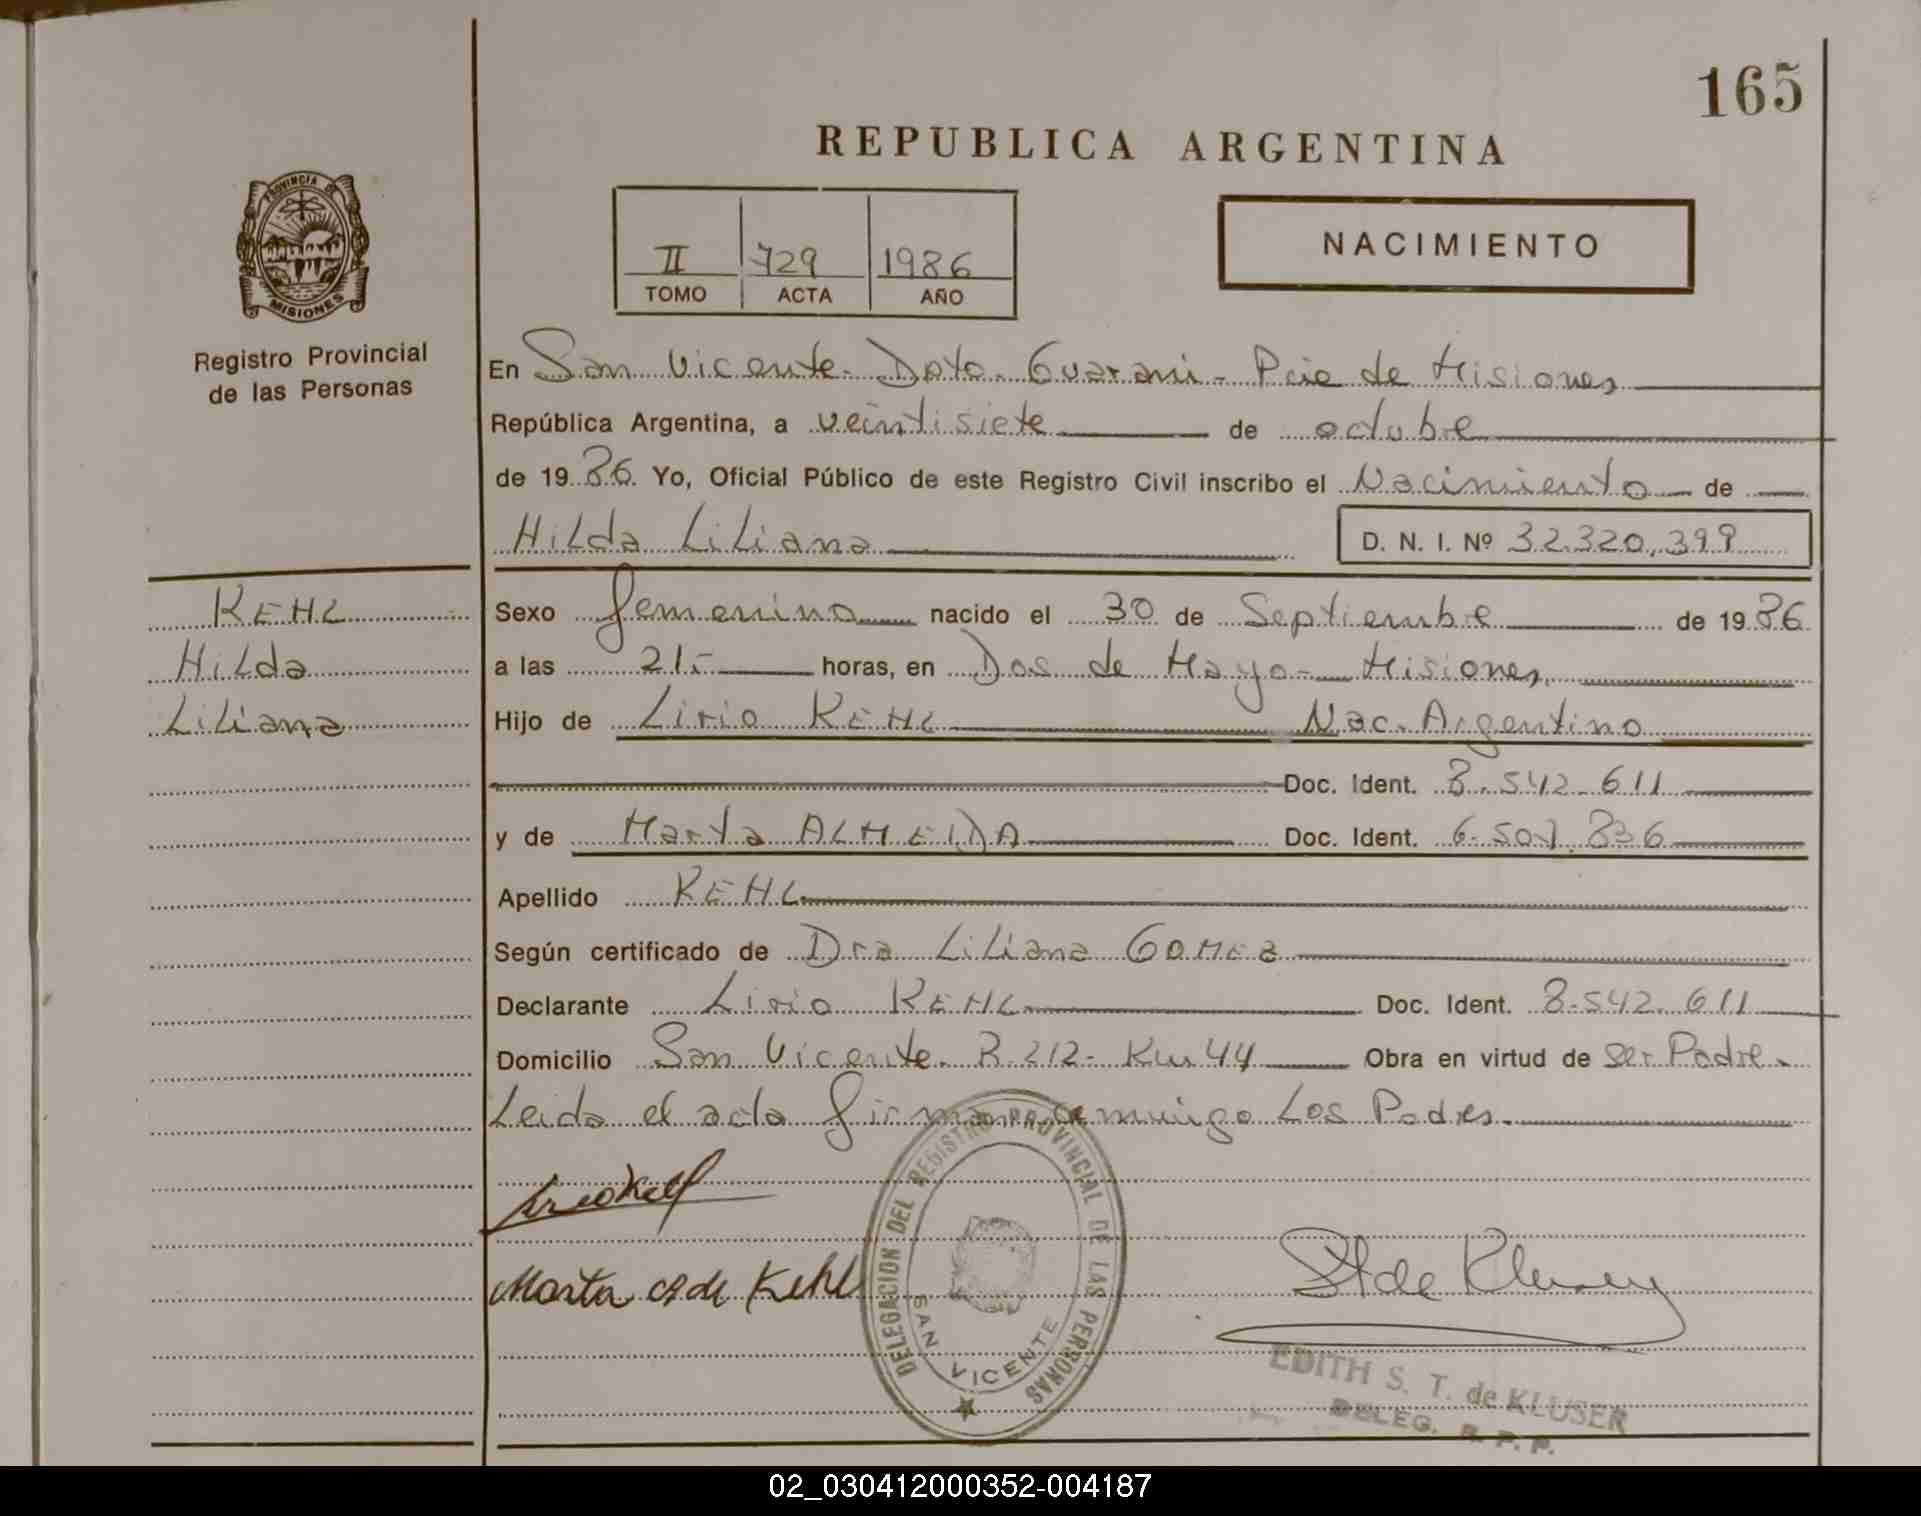 165
REPUBLICA ARGENTINA
PROVINCIA DE
MISIONES
Registro Provincial
de las Personas
II 729 1986
TOMO ACTA AÑO
NACIMIENTO
En San Vicente - Dpto. Guarani - Pcia de Misiones
República Argentina, a veintisiete de octubre
de 1986 Yo, Oficial Público de este Registro Civil inscribo el Nacimiento de
Hilda Liliana D. N. I. Nº 32.320.399
KEHL
Hilda
Liliana
Sexo femenino nacido el 30 de Septiembre de 1986
a las 21.- horas, en Dos de Mayo - Misiones
Hijo de Lirio KEHL Nac. Argentino
Doc. Ident. 8.542.611
y de Marta ALMEIDA Doc. Ident. 6.507.836
Apellido KEHL
Según certificado de Dra Liliana GOMEZ
Declarante Lirio KEHL Doc. Ident. 8.542.611
Domicilio San Vicente - R.212 - Km 44 Obra en virtud de ser Padre.
Leida el acta firman conmigo Los Padres.
Lirio Kehl
Marta A de Kehl
DELEGACION DEL REGISTRO PROVINCIAL DE LAS PERSONAS
SAN VICENTE
St de Kluser
EDITH S. T. de KLUSER
DELEG. R. P. P.
02_030412000352-004187